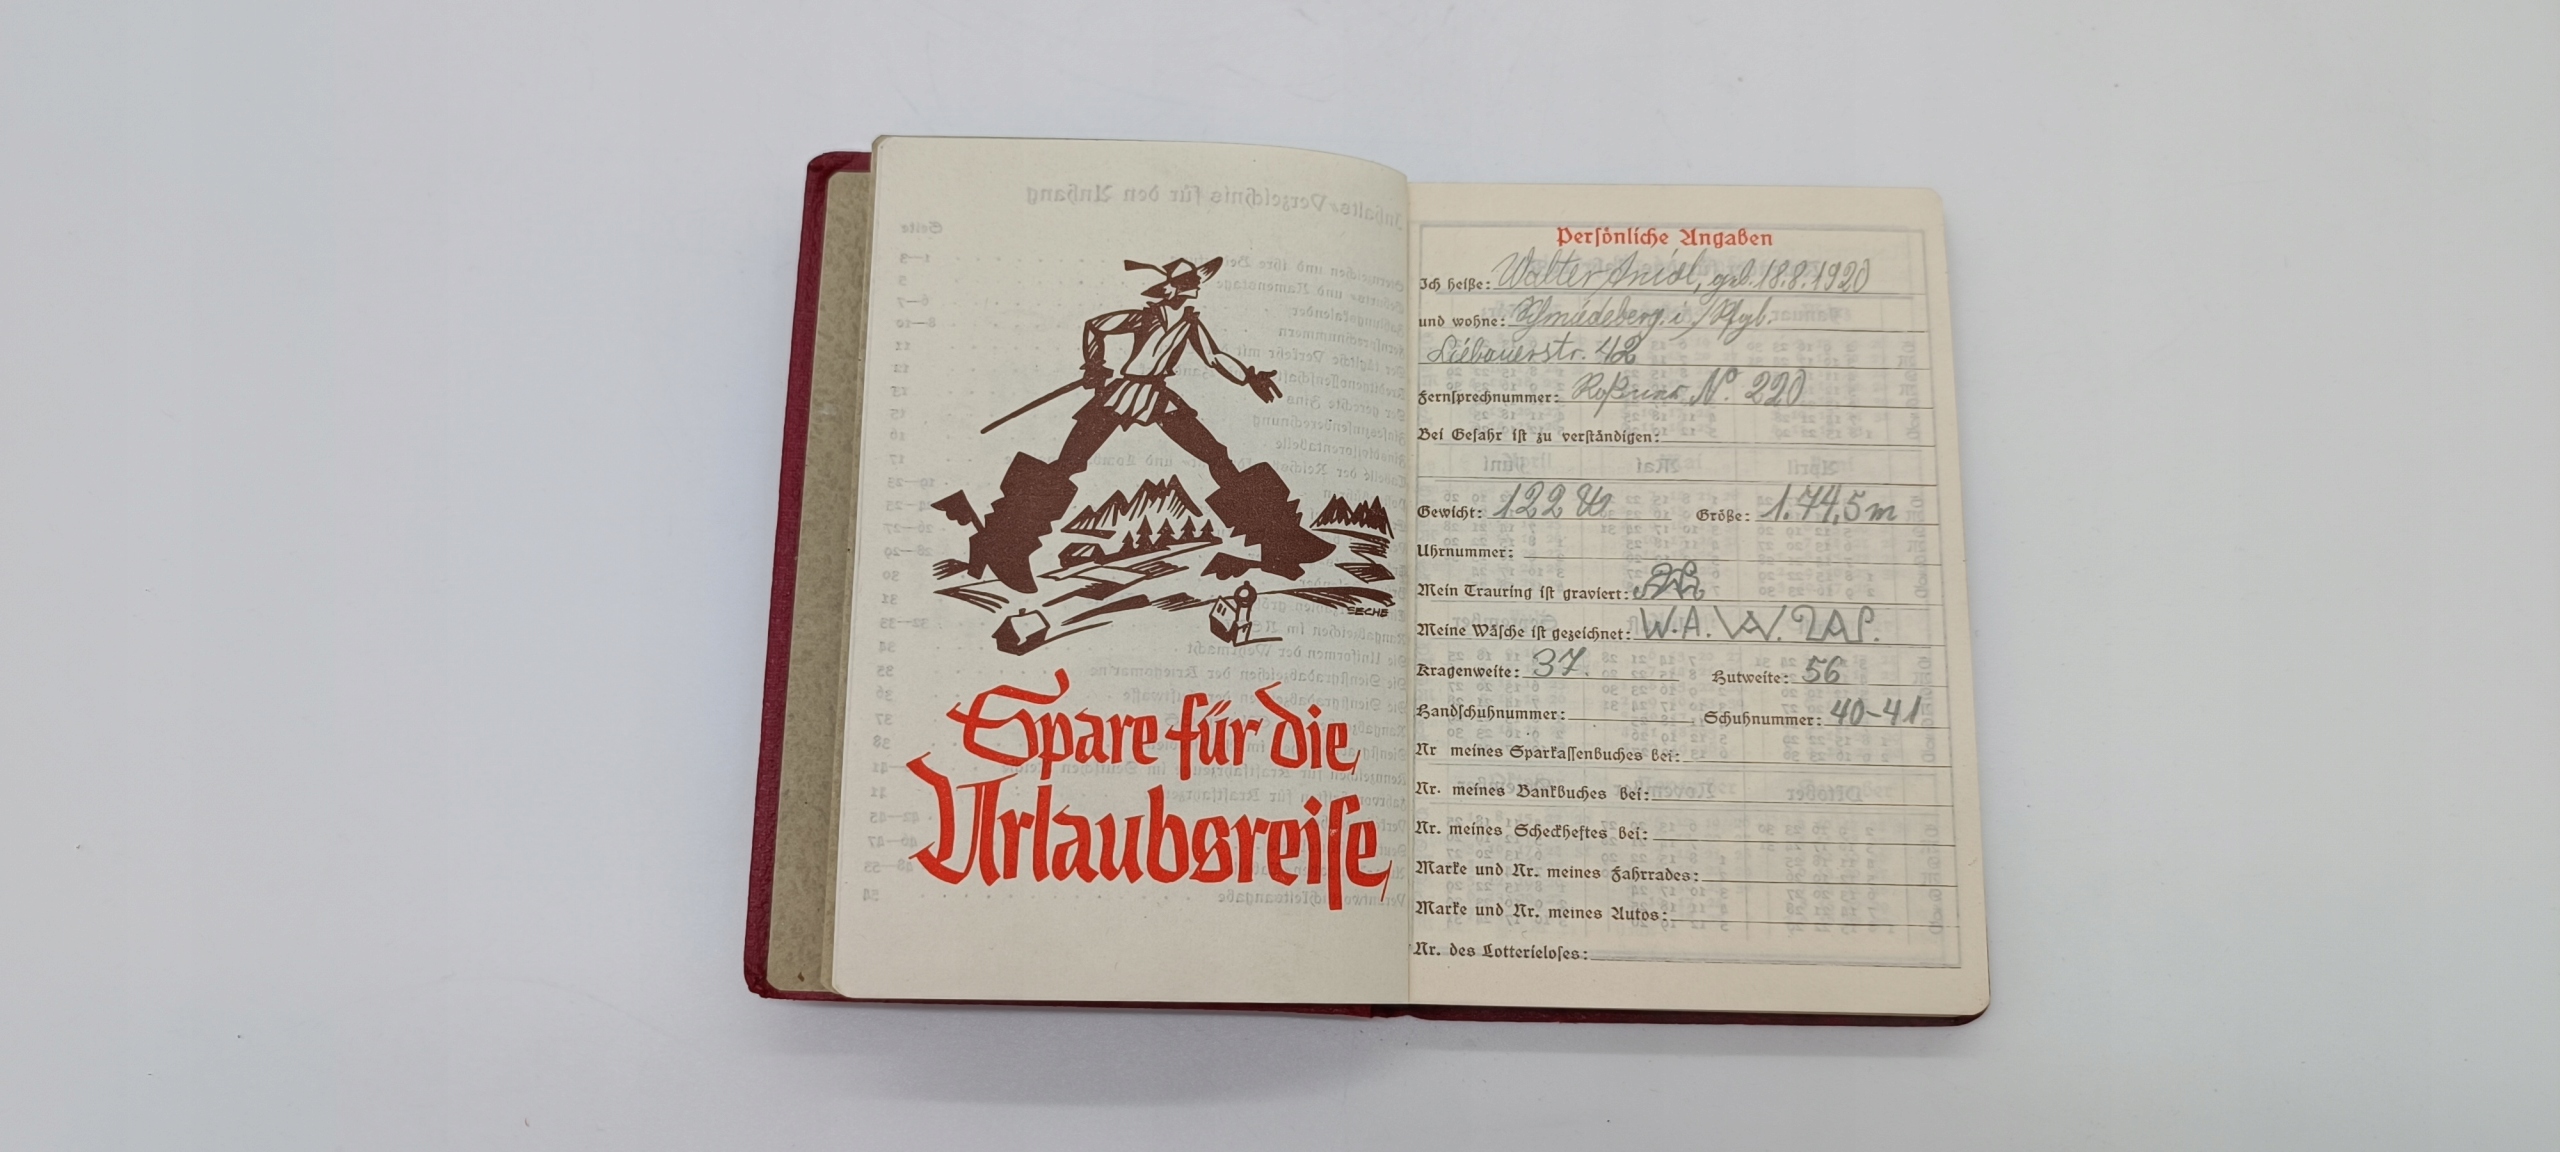 SECHE
Spare für die
Urlaubsreise
Persönliche Angaben
Ich heiße: Walter Aniol, geb. 18.8.1920
und wohne: Schmiedeberg i/Rsgb.
Liebauerstr. 42
Fernsprechnummer: No. 220
Bei Gefahr ist zu verständigen:
Gewicht: 122 ℔ Größe: 1.74,5 m
Uhrnummer:
Mein Trauring ist graviert:
Meine Wäsche ist gezeichnet: W.A. W.
Kragenweite: 37. Hutweite: 56
Handschuhnummer: Schuhnummer: 40-41
Nr meines Sparkassenbuches bei:
Nr. meines Bankbuches bei:
Nr. meines Scheckheftes bei:
Marke und Nr. meines Fahrrades:
Marke und Nr. meines Autos:
Nr. des Lotterieloses: